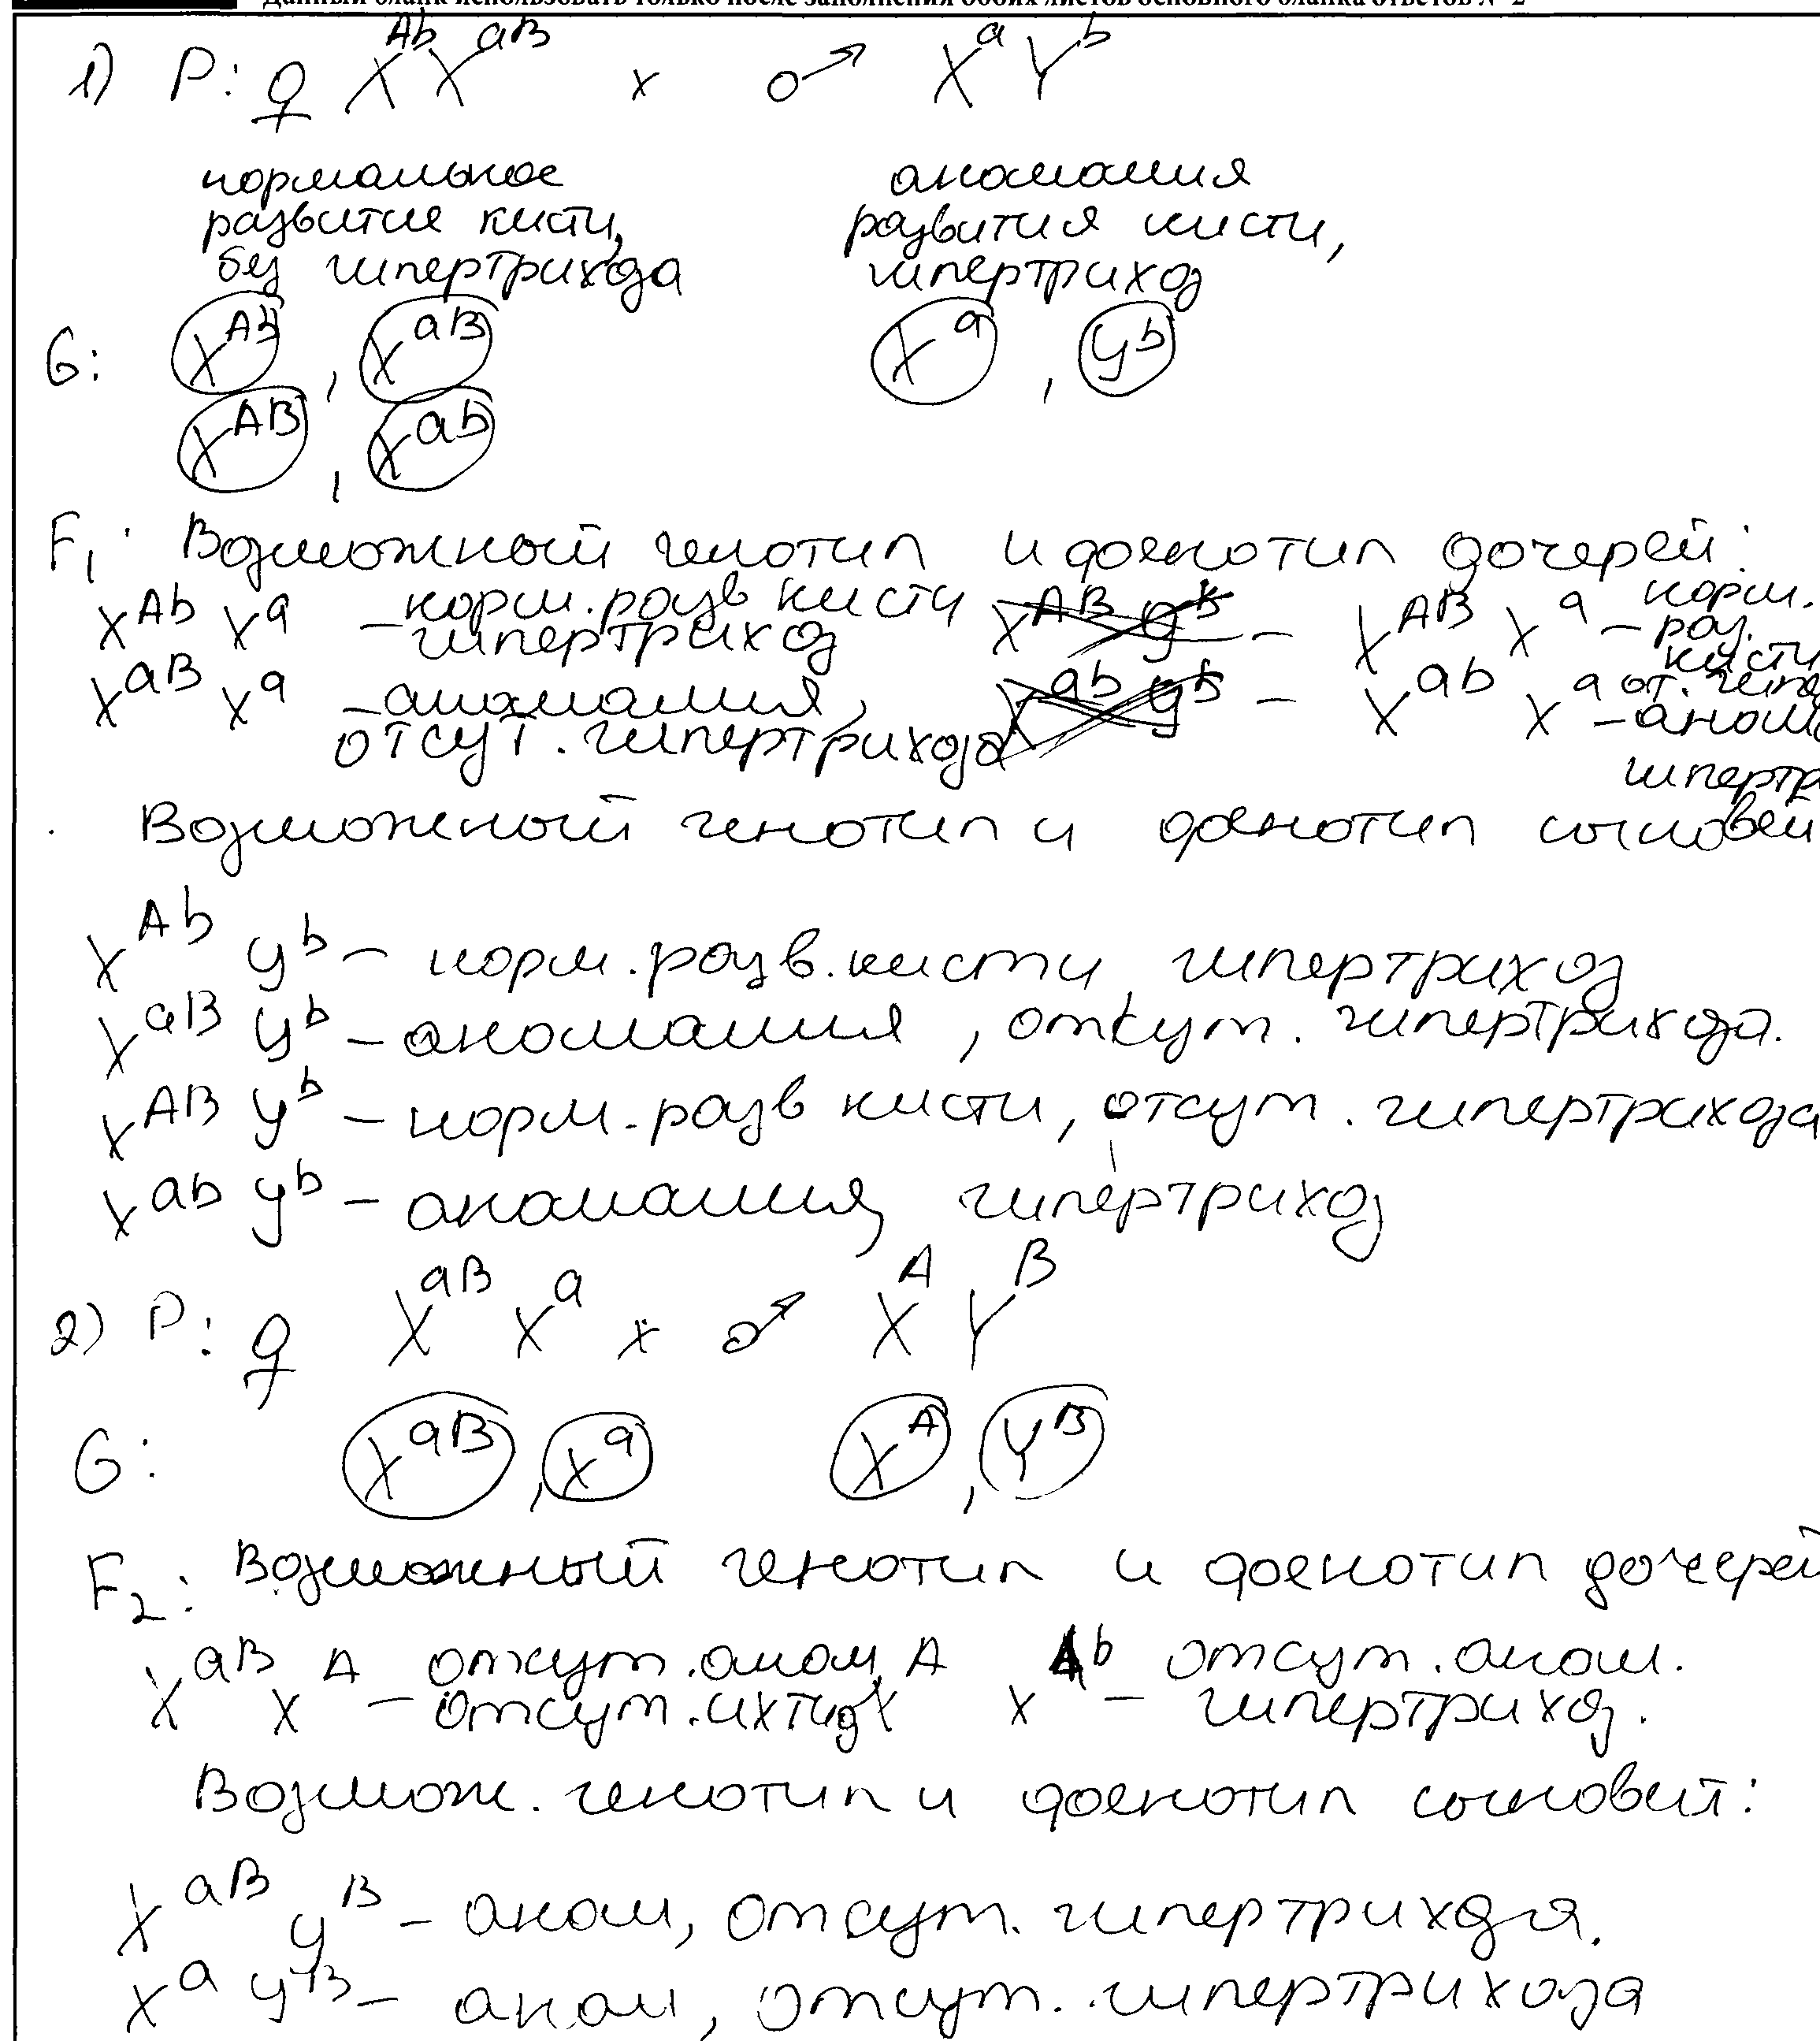 Данный бланк использовать только после заполнения обоих листов основного бланка ответов № 2
1) P: ♀ X^Ab X^aB x ♂ X^a Y^b
нормальное аномалия
развитие кисти, развития кисти,
без гипертрихоза гипертрихоз
G: X^Ab , X^aB X^a , y^b
X^AB , X^ab
F1: Возможный генотип и фенотип дочерей:
X^Ab X^a – норм. разв кисти X^AB X^a – норм.
гипертрихоз раз.
кисти
X^aB X^a – аномалия, X^ab X^a от. гипе
отсут. гипертрихоза – аном
гипертр
Возможный генотип и фенотип сыновей
X^Ab y^b – норм. разв. кисти, гипертрихоз
X^aB y^b – аномалия, отсут. гипертрихоза.
X^AB y^b – норм. разв кисти, отсут. гипертрихоза
X^ab y^b – аномалия, гипертрихоз
2) P: ♀ X^aB X^a x ♂ X^A Y^B
G: X^aB , X^a X^A , Y^B
F2: Возможный генотип и фенотип дочерей
X^aB X^A – отсут. аном, X^A X^Ab – отсут. аном.
отсут. ихтиоз гипертрихоз.
Возмож. генотип и фенотип сыновей:
X^aB y^B – аном, отсут. гипертрихоза.
X^a y^B – аном, отсут. гипертрихоза